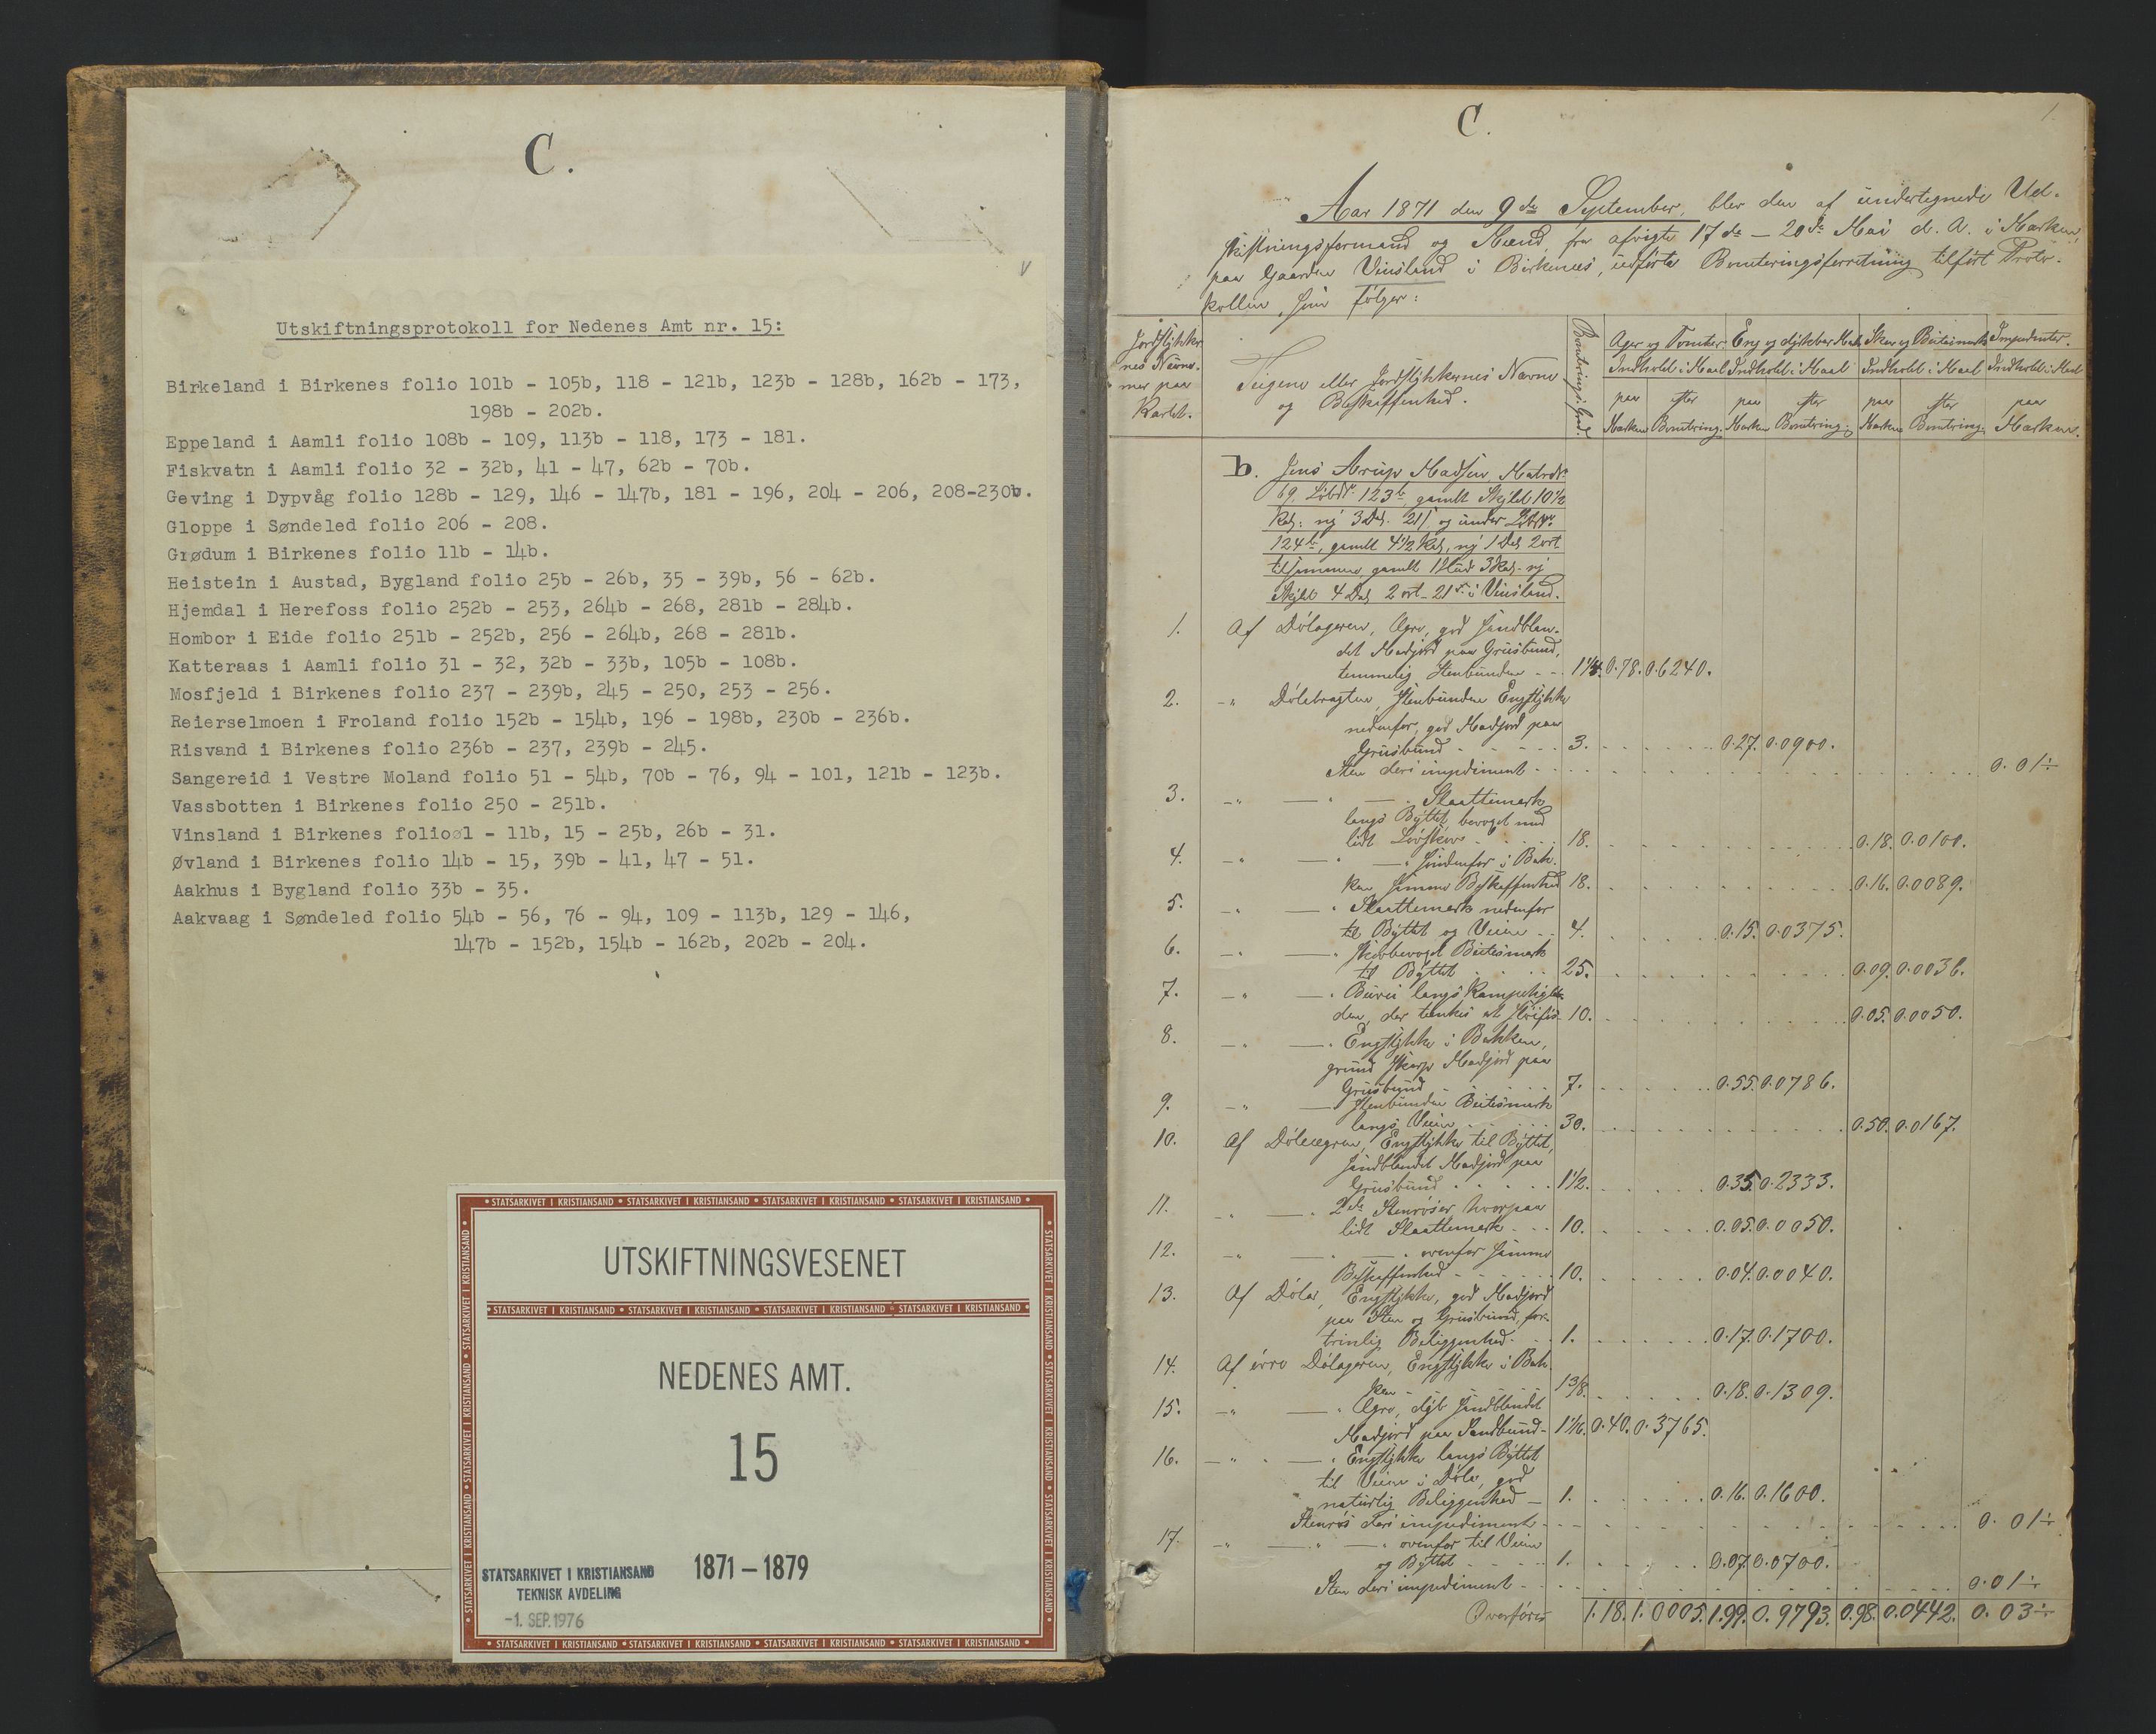 C.
V
Utskiftningsprotokoll for Nedenes Amt nr. 15:
Birkeland i Birkenes folio 101b - 105b, 118 - 121b, 123b - 128b, 162b - 173,
198b - 202b.
Eppeland i Aamli folio 108b - 109, 113b - 118, 173 - 181.
Fiskvatn i Aamli folio 32 - 32b, 41 - 47, 62b - 70b.
Geving i Dypvåg folio 128b - 129, 146 - 147b, 181 - 196, 204 - 206, 208-230b.
Gloppe i Søndeled folio 206 - 208.
Grødum i Birkenes folio 11b - 14b.
Heistein i Austad, Bygland folio 25b - 26b, 35 - 39b, 56 - 62b.
Hjemdal i Herefoss folio 252b - 253, 264b - 268, 281b - 284b.
Hombor i Eide folio 251b - 252b, 256 - 264b, 268 - 281b.
Katteraas i Aamli folio 31 - 32, 32b - 33b, 105b - 108b.
Mosfjeld i Birkenes folio 237 - 239b, 245 - 250, 253 - 256.
Reierselmoen i Froland folio 152b - 154b, 196 - 198b, 230b - 236b.
Risvand i Birkenes folio 236b - 237, 239b - 245.
Sangereid i Vestre Moland folio 51 - 54b, 70b - 76, 94 - 101, 121b - 123b.
Vassbotten i Birkenes folio 250 - 251b.
Vinsland i Birkenes folio 1 - 11b, 15 - 25b, 26b - 31.
Øvland i Birkenes folio 14b - 15, 39b - 41, 47 - 51.
Aakhus i Bygland folio 33b - 35.
Aakvaag i Søndeled folio 54b - 56, 76 - 94, 109 - 113b, 129 - 146,
147b - 152b, 154b - 162b, 202b - 204.
• STATSARKIVET I KRISTIANSAND • STATSARKIVET I KRISTIANSAND • STATSARKIVET I KRISTIANSAND • STATSARKIVET I KRISTIANSAND •
UTSKIFTNINGSVESENET
• STATSARKIVET I KRISTIANSAND • STATSARKIVET I KRISTIANSAND • STATSARKIVET I KRISTIANSAND • STATSARKIVET I KRISTIANSAND •
NEDENES AMT.
15
1871 – 1879
STATSARKIVET I KRISTIANSAND
TEKNISK AVDELING
-1. SEP. 1976
• STATSARKIVET I KRISTIANSAND • STATSARKIVET I KRISTIANSAND • STATSARKIVET I KRISTIANSAND • STATSARKIVET I KRISTIANSAND •
C.
1.
Aar 1871 den 9de September, blev den af undertegnede Ud-
skiftningsformand og Mænd, fra afvigte 17de – 20de Mai d. A. i Marken,
paa Gaarden Vinsland i Birkenes, udførte Boniteringsforretning tilført Proto-
kollen, som følger:
Jordstykker-
nes Numme-
mer paa
Kartet.
Teigene eller Jordstykkernes Navne
og Beskaffenhed.
Bonitering i Grad.
Ager og Tomter. Eng og dyrkbar Mark. Skov og Beitesmark. Impedimenter.
Indhold i Maal Indhold i Maal Indhold i Maal Indhold i Maal
paa efter paa efter paa efter paa
Marken Bonitering. Marken Bonitering. Marken Bonitering. Marken.
b. Jens Arup Madsen, Matr.No
69. Løbeno. 123b, gamlt Skyld 10 1/2
124b, gamlt 4 1/2 Kds, ny 1 Dal 2 ort
tilsammen gamlt 1 Hud 3 Kds. ny
Skyld 4 Dal 2 ort 21 s. i Vinsland.
1. Af Dølageren, Ager, god sandblan-
det Madjord paa Gruusbund,
temmelig Stenbunden - - 1 1/4. 0.78. 0.6240.
2. -"- Stenbunden Engstykke
nedenfor, god Madjord paa
Gruusbund 3. 0.27. 0.0900.
Sten deri impediment 0.01
3. -"- Slaattemark
langs Byttet, bevoxet med
lidt Løvskov 18. 0.18. 0.0100.
4. -"- Søndenfor i Bak-
ken samme Beskaffenhed 18. 0.16. 0.0089.
5. -"- Slaattemark nedenfor
til Byttet og Veien 4. 0.15. 0.0375.
6. -"- Skovbevoxet Beitesmark
til Byttet 25. 0.09. 0.0036.
7. -"- langs
10. 0.05. 0.0050.
8. -"- Engstykke i Bakken,
grund skarp Madjord paa
Gruusbund 7. 0.55. 0.0786.
9. -"- Stenbunden Beitesmark
langs Veien 30. 0.50. 0.0167.
10. Af Engstykke til Byttet,
sandblandet Madjord paa
Gruusbund 1 1/2. 0.35. 0.2333.
11. -"- 2de Stenrøser hvorpaa
lidt Slaattemark 10. 0.05. 0.0050.
12. -"- ovenfor samme
Beskaffenhed 10. 0.04. 0.0040.
13. Af Døla, Engstykke, god Madjord
paa Sten og Gruusbund, for-
trinlig Beliggenhed 1. 0.17. 0.1700.
14. Af øvre Dølageren, Engstykke i Bak-
ken 1 3/8. 0.18. 0.1309.
15. -"- Ager, dyb sandblandet
Madjord paa Sandbund 1 1/16. 0.40. 0.3765.
16. -"- Engstykke langs Byttet
til Veien i Døla, god
naturlig Beliggenhed 1. 0.16. 0.1600.
Stenrøs deri impediment 0.01
17. -"- ovenfor til Veien
og Byttet 1. 0.07. 0.0700.
Sten deri impediment 0.01
Overføres 1.18. 1.0005. 1.99. 0.9793. 0.98. 0.0442. 0.03